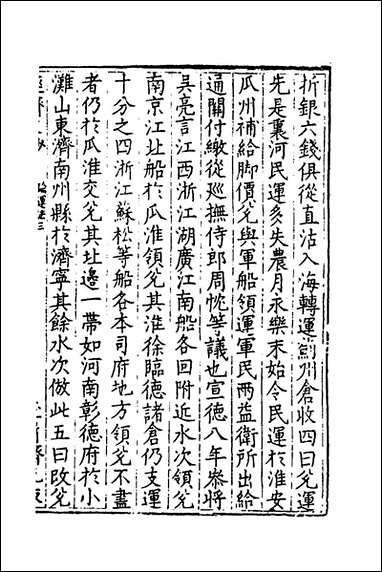 折銀六錢俱從直沽入海轉運薊州倉收四曰兌運
先是裏河民運多失農月永樂末始令民運於淮安
瓜州補給脚價兌與軍船領運軍民兩益衛所出給
通關付繳從廵撫侍郎周忱等議也宣德八年叅將
吳亮言江西浙江湖廣江南船各回附近水次領兌
南京江北船於瓜淮領兌其淮徐臨德諸倉仍支運
十分之四浙江蘇松等船各本司府地方領兌不盡
者仍於瓜淮交兌其北邊一帶如河南彰德府於小
灘山東濟南州縣於濟寧其餘水次倣此五曰改兌